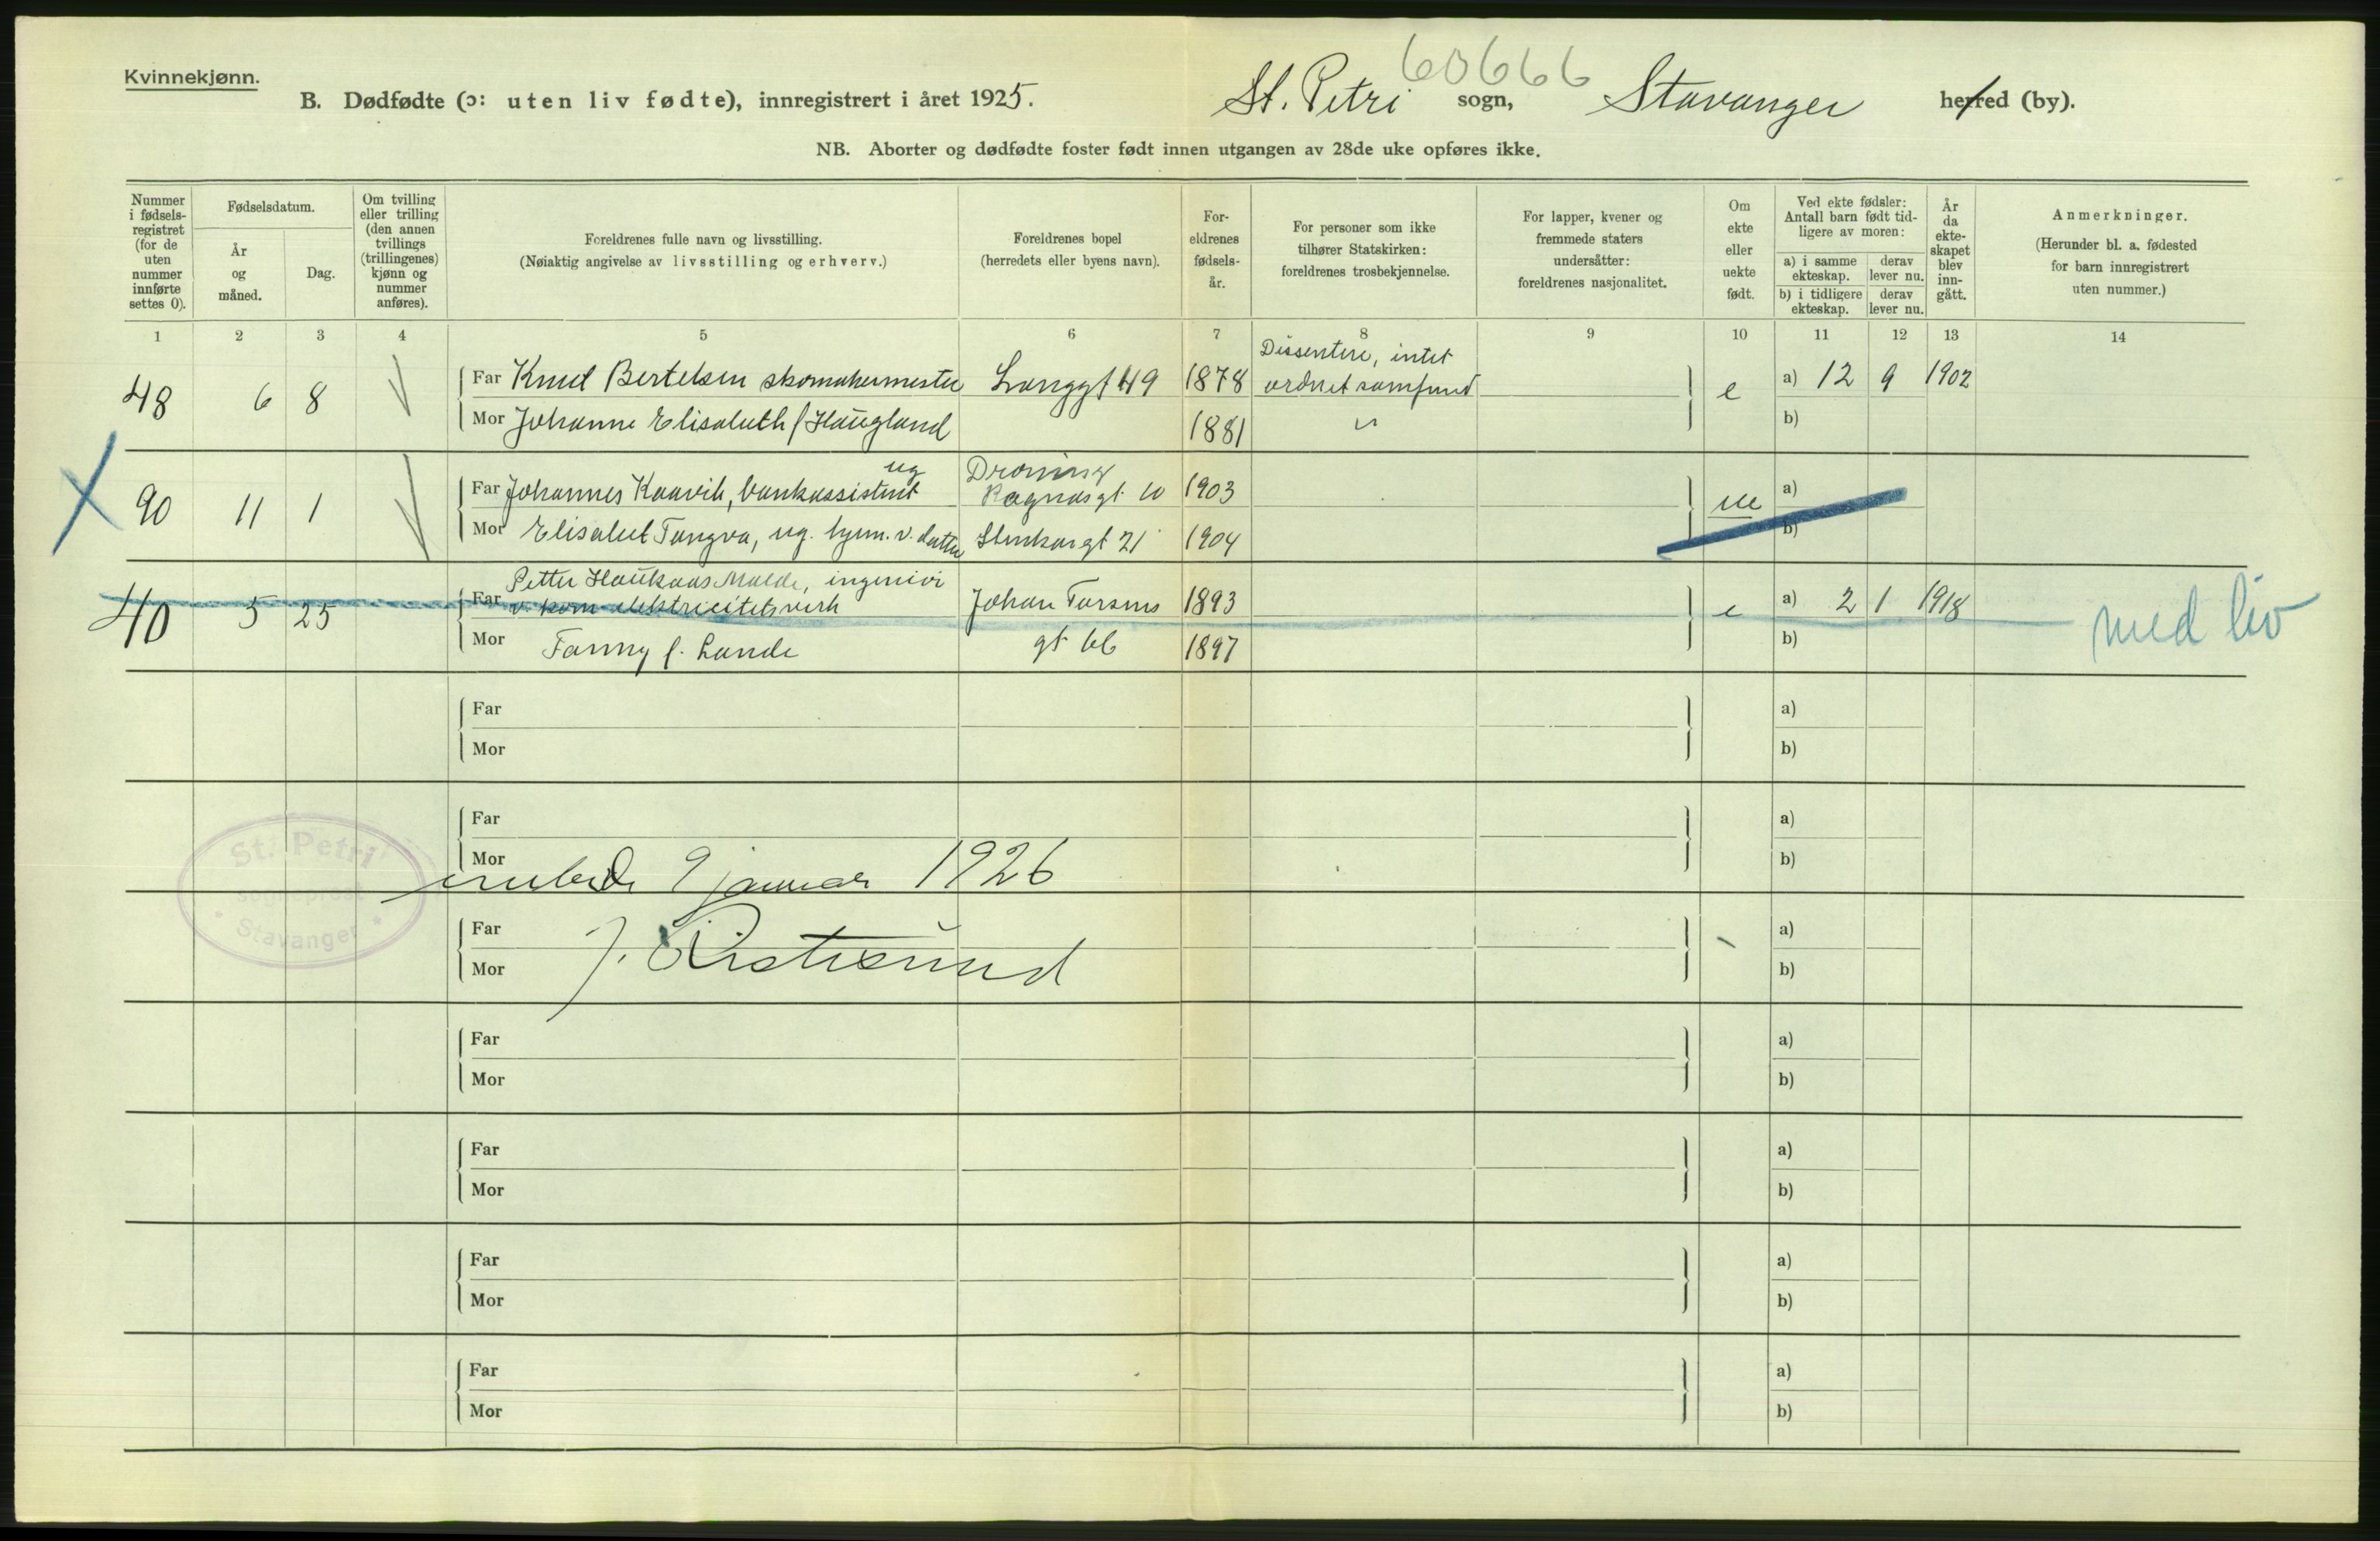 60666
Kvinnekjønn.
B. Dødfødte (ɔ: uten liv fødte), innregistrert i året 1925. St. Petri sogn, Stavanger herred (by).
NB. Aborter og dødfødte foster født innen utgangen av 28de uke opføres ikke.
Nummer i fødsels-registret (for de uten nummer innførte settes 0).
Fødselsdatum.
År og måned.
Dag.
Om tvilling eller trilling (den annen tvillings (trillingenes) kjønn og nummer anføres).
Foreldrenes fulle navn og livsstilling.
(Nøiaktig angivelse av livsstilling og erhverv.)
Foreldrenes bopel
(herredets eller byens navn).
For-eldrenes fødsels-år.
For personer som ikke tilhører Statskirken: foreldrenes trosbekjennelse.
For lapper, kvener og fremmede staters undersåtter: foreldrenes nasjonalitet.
Om ekte eller uekte født.
Ved ekte fødsler: Antall barn født tid-ligere av moren:
a) i samme ekteskap. derav lever nu.
b) i tidligere ekteskap. derav lever nu.
År da ekte-skapet blev inn-gått.
Anmerkninger.
(Herunder bl. a. fødested for barn innregistrert uten nummer.)
1 2 3 4 5 6 7 8 9 10 11 12 13 14
Dissentere, intet
48 6 8 Far Knut Bertelsen skomakermester Langgt 49 1878 ordnet samfund e a) 12 9 1902
Mor Johanne Elisabeth f Haugland 1881 " b)
ug Dronning
90 11 1 Far Johannes Kaarvik, bankassistent Ragnasgt 10 1903 ue a)
Mor Elisabet Tangva, ug. hjem. v. datter Stenkargt 21 1904 b)
Petter Haukaas Malde, ingeniør
40 5 25 Far v. kom. elektricitetsverk Johan Torsens 1893 e a) 2 1 1918 med liv
Mor Fanny f. Lunde gt 66 1897 b)
Far a)
Mor b)
Far a)
St. Petri
sogneprest
Stavanger
Mor 9 januar 1926 b)
Far J. a)
Mor b)
Far a)
Mor b)
Far a)
Mor b)
Far a)
Mor b)
Far a)
Mor b)